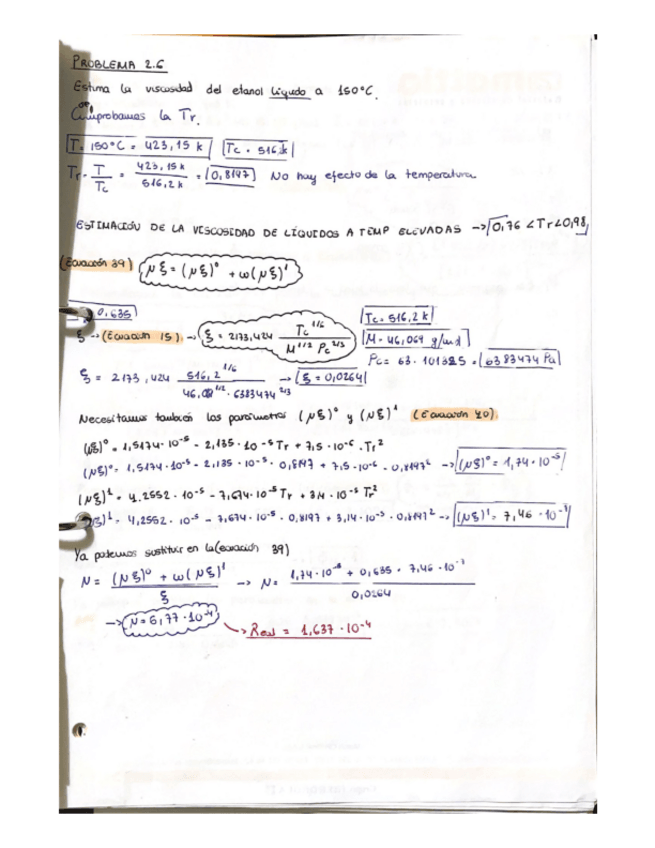 PROBLEMA 2.6
Estima la viscosidad del etanol líquido a 150°C.
Comprobamos la Tr.
T = 150°C = 423,15 k Tc = 516,2 k
Tr = T / Tc = 423,15 k / 516,2 k = 0,8197 No hay efecto de la temperatura.
ESTIMACIÓN DE LA VISCOSIDAD DE LÍQUIDOS A TEMP ELEVADAS → 0,76 < Tr < 0,98
(Ecuación 39) μξ = (μξ)⁰ + ω(μξ)¹
0,635
ξ → (Ecuación 15) → ξ = 2173,424 Tc^1/6 / M^1/2 Pc^2/3
Tc = 516,2 k
M = 46,069 g/mol
Pc = 63 · 101325 = 6383474 Pa
ξ = 2173,424 516,2^1/6 / 46,0^1/2 · 6383474^2/3 → ξ = 0,0264
Necesitamos también los parámetros (μξ)⁰ y (μξ)¹ (Ecuación 40)
(μξ)⁰ = 1,5174·10⁻⁵ - 2,135·10⁻⁵ Tr + 7,5·10⁻⁶ · Tr²
(μξ)⁰ = 1,5174·10⁻⁵ - 2,135·10⁻⁵ · 0,8197 + 7,5·10⁻⁶ · 0,8197² → (μξ)⁰ = 1,74·10⁻⁵
(μξ)¹ = 4,2552·10⁻⁵ - 7,674·10⁻⁵ Tr + 3,4·10⁻⁵ Tr²
(μξ)¹ = 4,2552·10⁻⁵ - 7,674·10⁻⁵ · 0,8197 + 3,4·10⁻⁵ · 0,8197² → (μξ)¹ = 7,46·10⁻⁷
Ya podemos sustituir en la (ecuación 39)
μ = (μξ)⁰ + ω(μξ)¹ / ξ → μ = 1,74·10⁻⁵ + 0,635 · 7,46·10⁻⁷ / 0,0264
→ μ = 6,77·10⁻⁴ → Real = 1,637·10⁻⁴